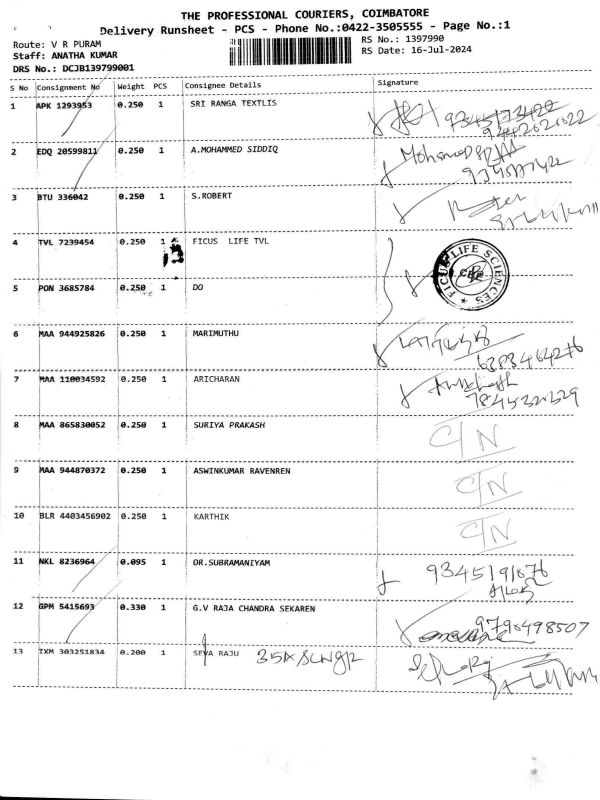 THE PROFESSIONAL COURIERS, COIMBATORE
Delivery Runsheet - PCS - Phone No.:0422-3505555 - Page No.:1
Route: V R PURAM RS No.: 1397990
Staff: ANATHA KUMAR RS Date: 16-Jul-2024
DRS No.: DCJB139799001
S No Consignment No Weight PCS Consignee Details Signature
1 APK 1293953 0.250 1 SRI RANGA TEXTLIS
2 EDQ 20599811 0.250 1 A.MOHAMMED SIDDIQ
3 BTU 336042 0.250 1 S.ROBERT
4 TVL 7239454 0.250 1 FICUS LIFE TVL
FICUS LIFE SCIENCES
CBE
5 PON 3685784 0.250 1 DO
6 MAA 944925826 0.250 1 MARIMUTHU
7 MAA 110034592 0.250 1 ARICHARAN
8 MAA 865830052 0.250 1 SURIYA PRAKASH C/N
9 MAA 944870372 0.250 1 ASWINKUMAR RAVENREN C/N
10 BLR 4403456902 0.250 1 KARTHIK C/N
11 NKL 8236964 0.095 1 DR.SUBRAMANIYAM 9345191876
12 GPM 5415693 0.330 1 G.V RAJA CHANDRA SEKAREN 9798498507
13 TXM 303251834 0.200 1 SEVA RAJU